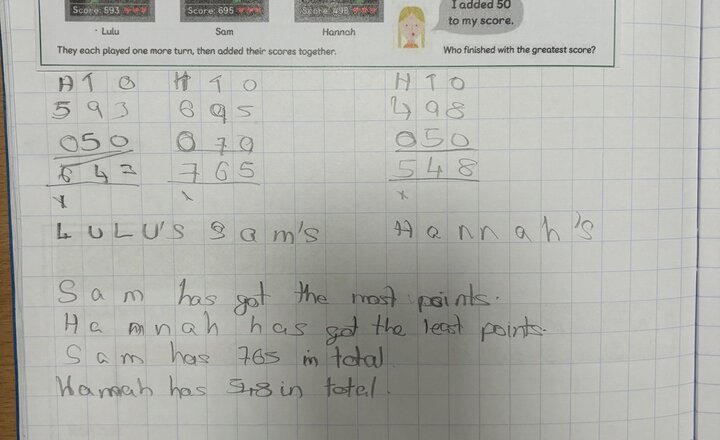 Score: 593 Score: 695 Score: 498
Lulu Sam Hannah
I added 50
to my score.
They each played one more turn, then added their scores together.
Who finished with the greatest score?
H T O H T O H T O
5 9 3 6 9 5 4 9 8
0 5 0 0 7 0 0 5 0
6 4 3 7 6 5 5 4 8
LULU'S Sam's Hannah's
Sam has got the most points.
Hannah has got the least points.
Sam has 765 in total
Hannah has 548 in total.